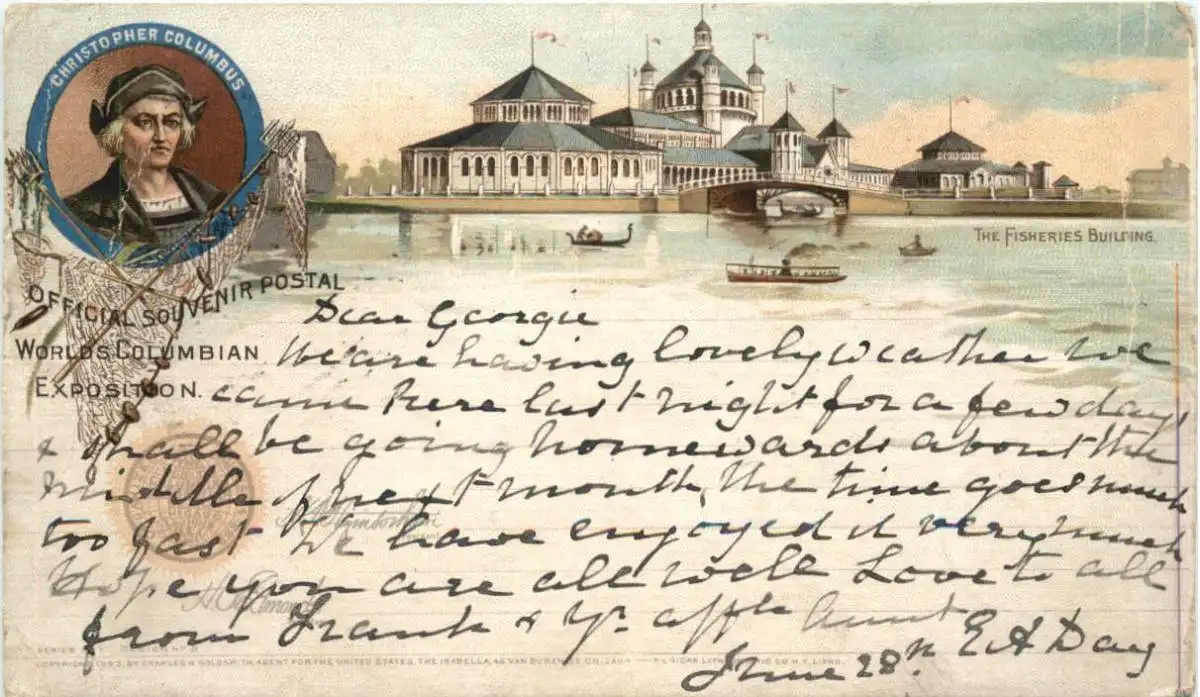 CHRISTOPHER COLUMBUS
THE FISHERIES BUILDING.
OFFICIAL SOUVENIR POSTAL
WORLDS COLUMBIAN
EXPOSITION.
Dear Georgie
We are having lovely weather we
came here last night for a few days
& shall be going homewards about the
middle of next month, the time goes much
too fast We have enjoyed it very much
Hope you are all well Love to all
from Frank & yr affte Aunt
E A Day
June 28th
SERIES DESIGN No
COPYRIGHT 1893, BY CHARLES W. GOLDSMITH, AGENT FOR THE UNITED STATES, THE ISABELLA, 46 VAN BUREN ST. CH AMERICAN LITHOGRAPHIC CO. N.Y. LITHO.